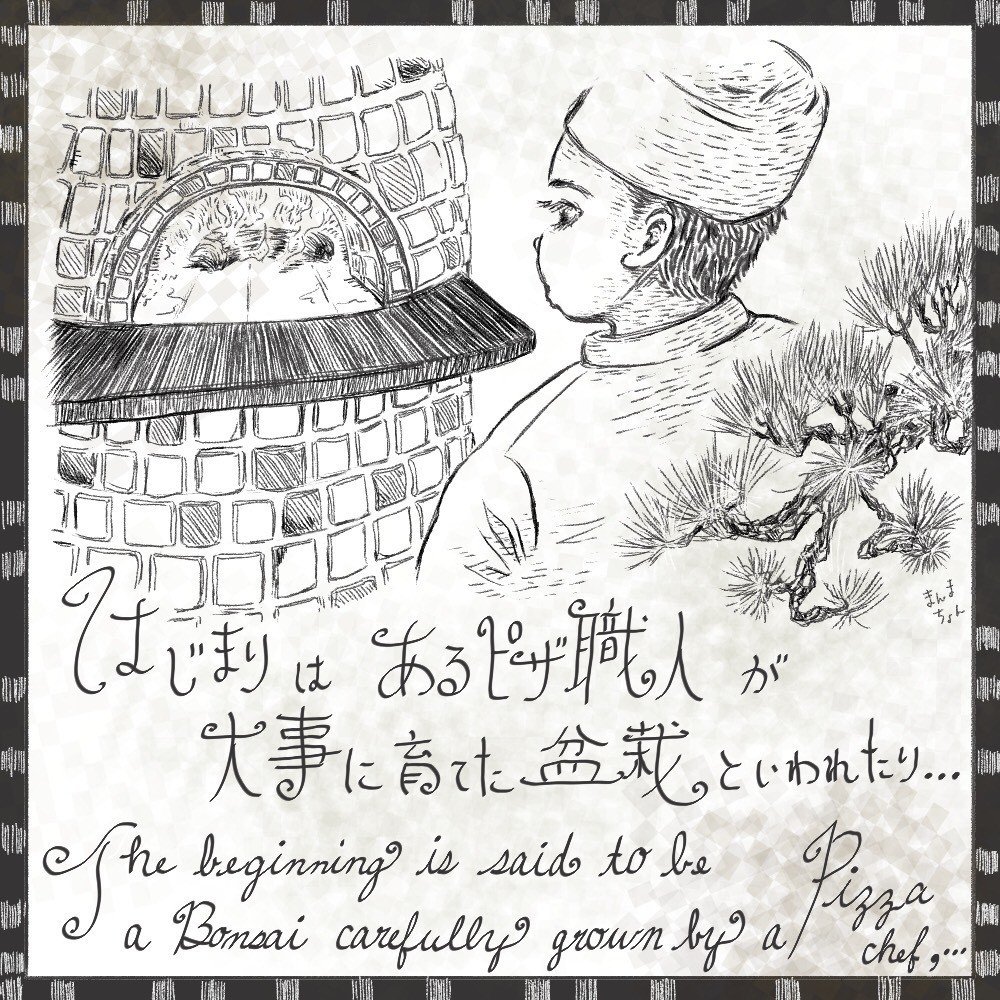 まんま
ちょん
はじまりは あるピザ職人が
大事に育てた盆栽といわれたり...
The beginning is said to be
a Bonsai carefully grown by a Pizza
chef,...